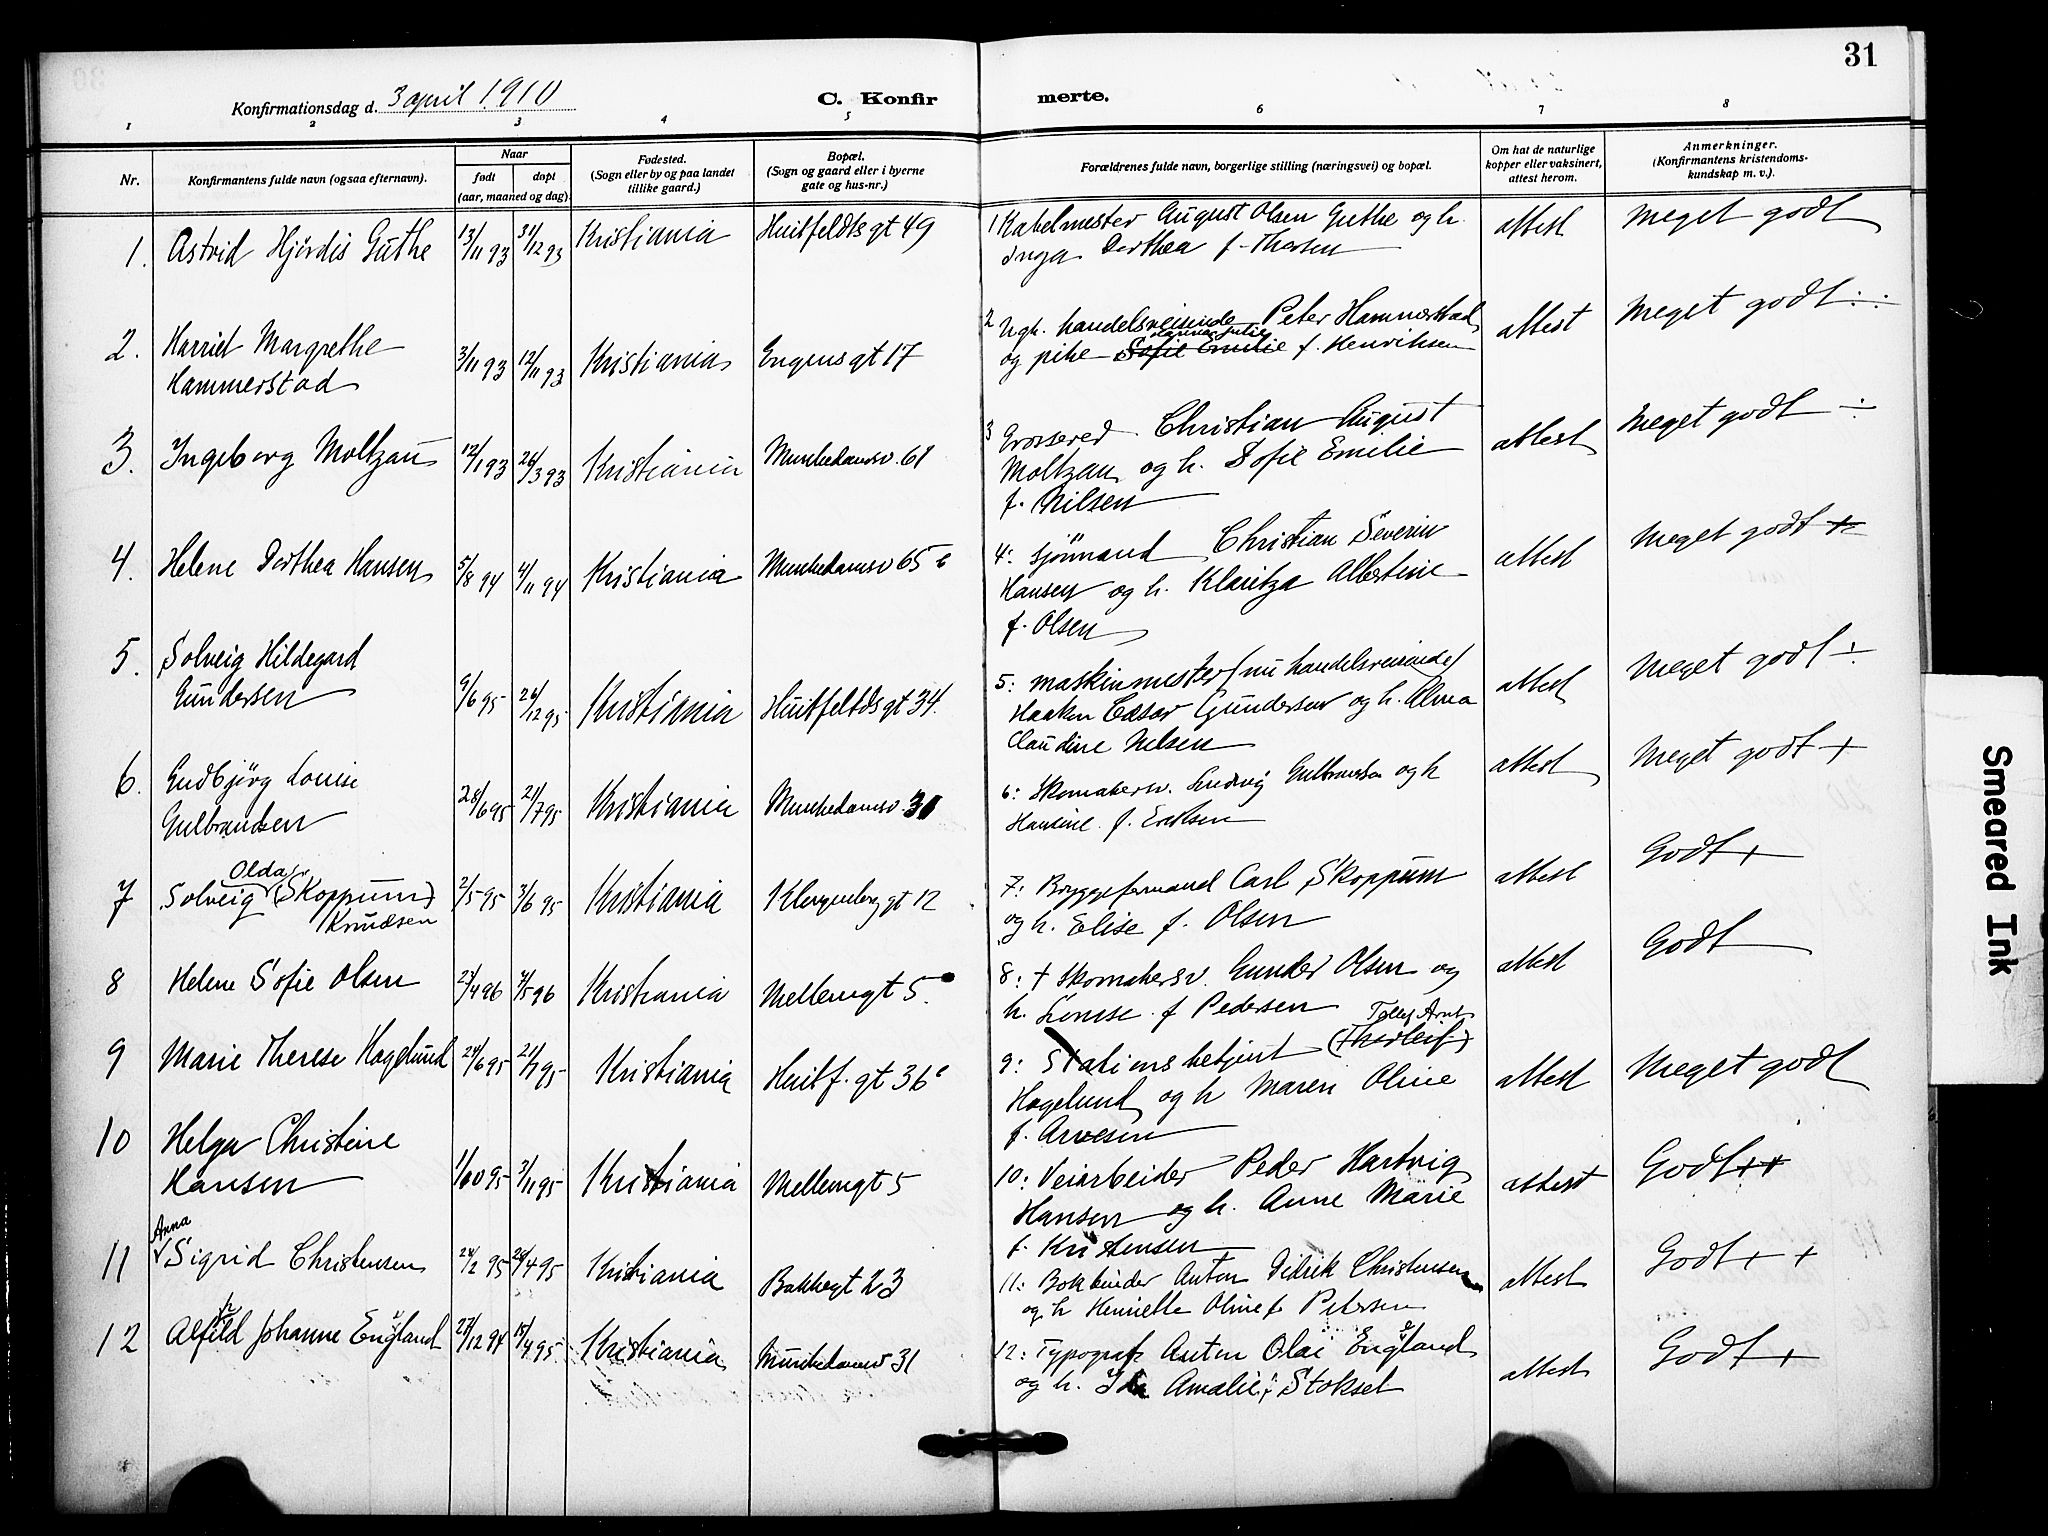 31
Konfirmationsdag d. 3 april 1910
C. Konfirmerte.
1 2 3 4 5 6 7 8
Nr.
Konfirmantens fulde navn (ogsaa efternavn).
Naar
født døpt
(aar, maaned og dag)
Fødested.
(Sogn eller by og paa landet
tillike gaard.)
Bopæl.
(Sogn og gaard eller i byerne
gate og hus-nr.)
Forældrenes fulde navn, borgerlige stilling (næringsvei) og bopæl.
Om hat de naturlige
kopper eller vaksinert,
attest herom.
Anmerkninger.
(Konfirmantens kristendoms-
kundskap m. v.).
1. Astrid Hjørdis Guthe 13/11 93 31/12 93 Kristiania Huitfeldts gt 49
1 Kabelmester August Olsen Guthe og h.
Inga Dorthea f. Thorsen
attest Meget godt
2. Harriet Margrethe
Hammerstad 3/11 93 12/11 93 Kristiania Engens gt 17
2 Ugh. handelsreisende Peter Hammerstad
og pike Sofie Emilie f. Henriksen
attest Meget godt ÷
3. Ingeborg Moltzau 12/1 93 26/3 93 Kristiania Munkedamsv. 61
3 Grosserer Christian August
Moltzau og h. Sofie Emilie
f. Nilsen
attest Meget godt ÷
4. Helene Dorthea Hansen 5/8 94 4/11 94 Kristiania Munkedamsv 65 c
4: Sjømand Christian Severin
Hansen og h. Klaritza Albertine
f. Olsen
attest Meget godt
5. Solveig Hildegard
Gundersen 9/6 95 26/12 95 Kristiania Huitfeltds gt 34.
5: Maskinmester (nu handelsreisende)
Haakon Cæsar Gundersen og h. Alma
Claudine Nilsen
attest Meget godt ÷
6. Gudbjørg Louise
Gulbrandsen 28/6 95 21/7 95 Kristiania Munkedamsv 31
6: Skomakersv. Ludvig Gulbrandsen og h
Hansine f. Eriksen
attest Meget godt +
7 Olda
Solveig (Skoppum)
Knudsen 2/5 95 3/6 95 Kristiania Klingenberg gt 12
7: Bryggeformand Carl Skoppum
og h. Elise f. Olsen
attest Godt +
8 Helene Sofie Olsen 27/4 96 7/5 96 Kristiania Mellemgt 5.
8: † Skomakersv. Gunder Olsen og
h. Lovise f Pedersen
attest Godt
9 Marie Therese Hagelund 24/6 95 21/7 95 Kristiania Huitf. gt 36 c
Tollef Arnt
9: Stationsbetjent (Thorleif)
Hagelund og h Maren Oline
f. Arvesen
attest Meget godt
10 Helga Christine
Hansen 1/10 95 3/11 95 Kristiania Mellemgt 5
10: Veiarbeider Peder Hartvig
Hansen og h. Anne Marie
f. Kristensen
attest Godt ++
Anna
11 Sigrid Christensen 24/2 95 28/4 95 Kristiania Bakkegt 23
11: Bokbinder Anton Didrik Christensen
og h Henriette Oline f. Petersen
attest Godt + +
12 Alfhild Johanne England 27/12 94 15/4 95 Kristiania Munkedamsv 31
12: Typograf Anton Olai England
og h. Ida Amalie f. Stokset
attest Godt +
Smeared Ink